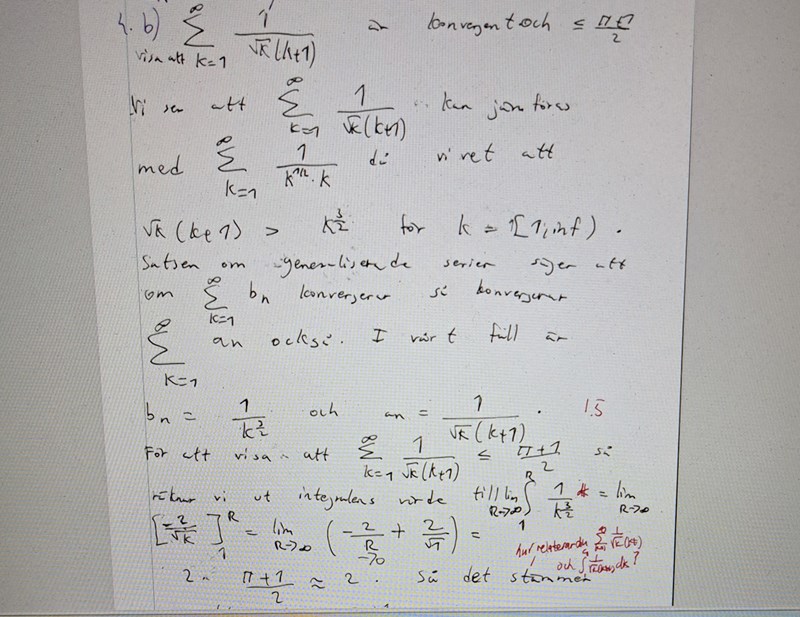 4. b) ∑_{k=1}^{∞} 1/(√k(k+1)) är konvergent och ≤ (π+1)/2
visa att
Vi ser att ∑_{k=1}^{∞} 1/(√k(k+1)) kan jämföras
med ∑_{k=1}^{∞} 1/(k^{1/2}·k) då vi vet att
√k (k+1) > k^{3/2} för k = [1, inf).
Satsen om generaliserade serier säger att
om ∑_{k=1}^{∞} bn konvergerar så konvergerar
∑_{k=1}^{∞} an också. I vårt fall är
bn = 1/k^{3/2} och an = 1/(√k(k+1)). 1.5
För att visa att ∑_{k=1}^{∞} 1/(√k(k+1)) ≤ (π+1)/2 så
räknar vi ut integralens värde till lim_{R→∞} ∫_1^R 1/k^{3/2} dk = lim_{R→∞}
[-2/√k]_1^R = lim_{R→∞} (-2/R + 2/√1) =
→0
hur relaterar du ∑_{k=1}^{∞} 1/(√k(k+1))
och ∫ 1/(√k(k+1)) dk?
2. (π+1)/2 ≈ 2. Så det stämmer